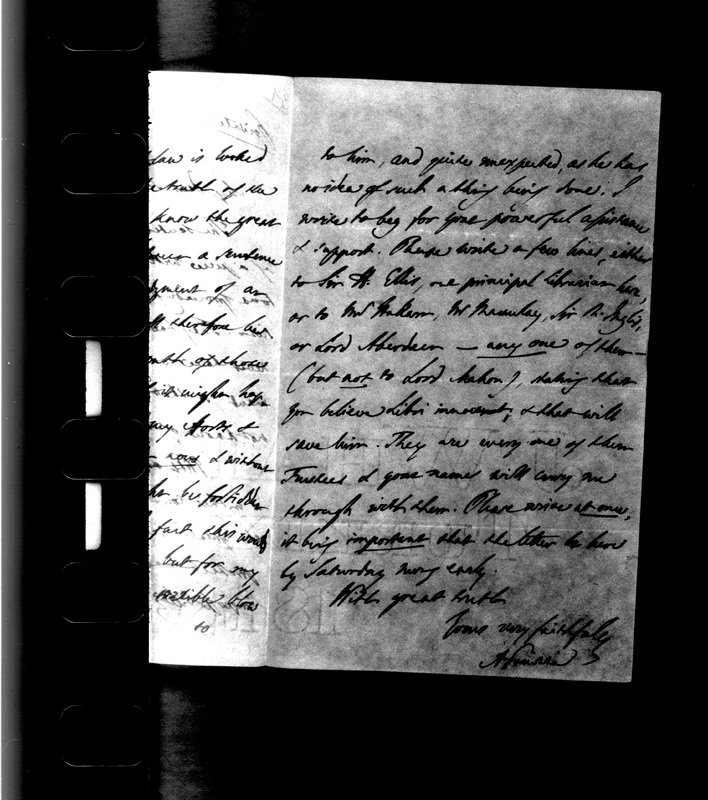 law is looked
the truth of the
know the great
a sentence
of an
therefore be
of those
it might
my
& without
be forbidden
fact this would
but for my
terrible blow
to
to him, and quite unexpected, as he has
no idea of such a thing being done. I
write to beg for your powerful assistance
& support. Please write a few lines, either
to Sir H. Ellis, our principal librarian here,
or to Mr Hallam, Mr Macaulay, Sir R. Inglis,
or Lord Aberdeen — any one of them —
(but not to Lord Mahon), stating that
you believe Libri innocent, & that will
save him. They are every one of them
Trustees & your name will carry me
through with them. Please write at once,
it being important that the letter be here
by Saturday morng early.
With great truth
Yours very faithfully
A Panizzi